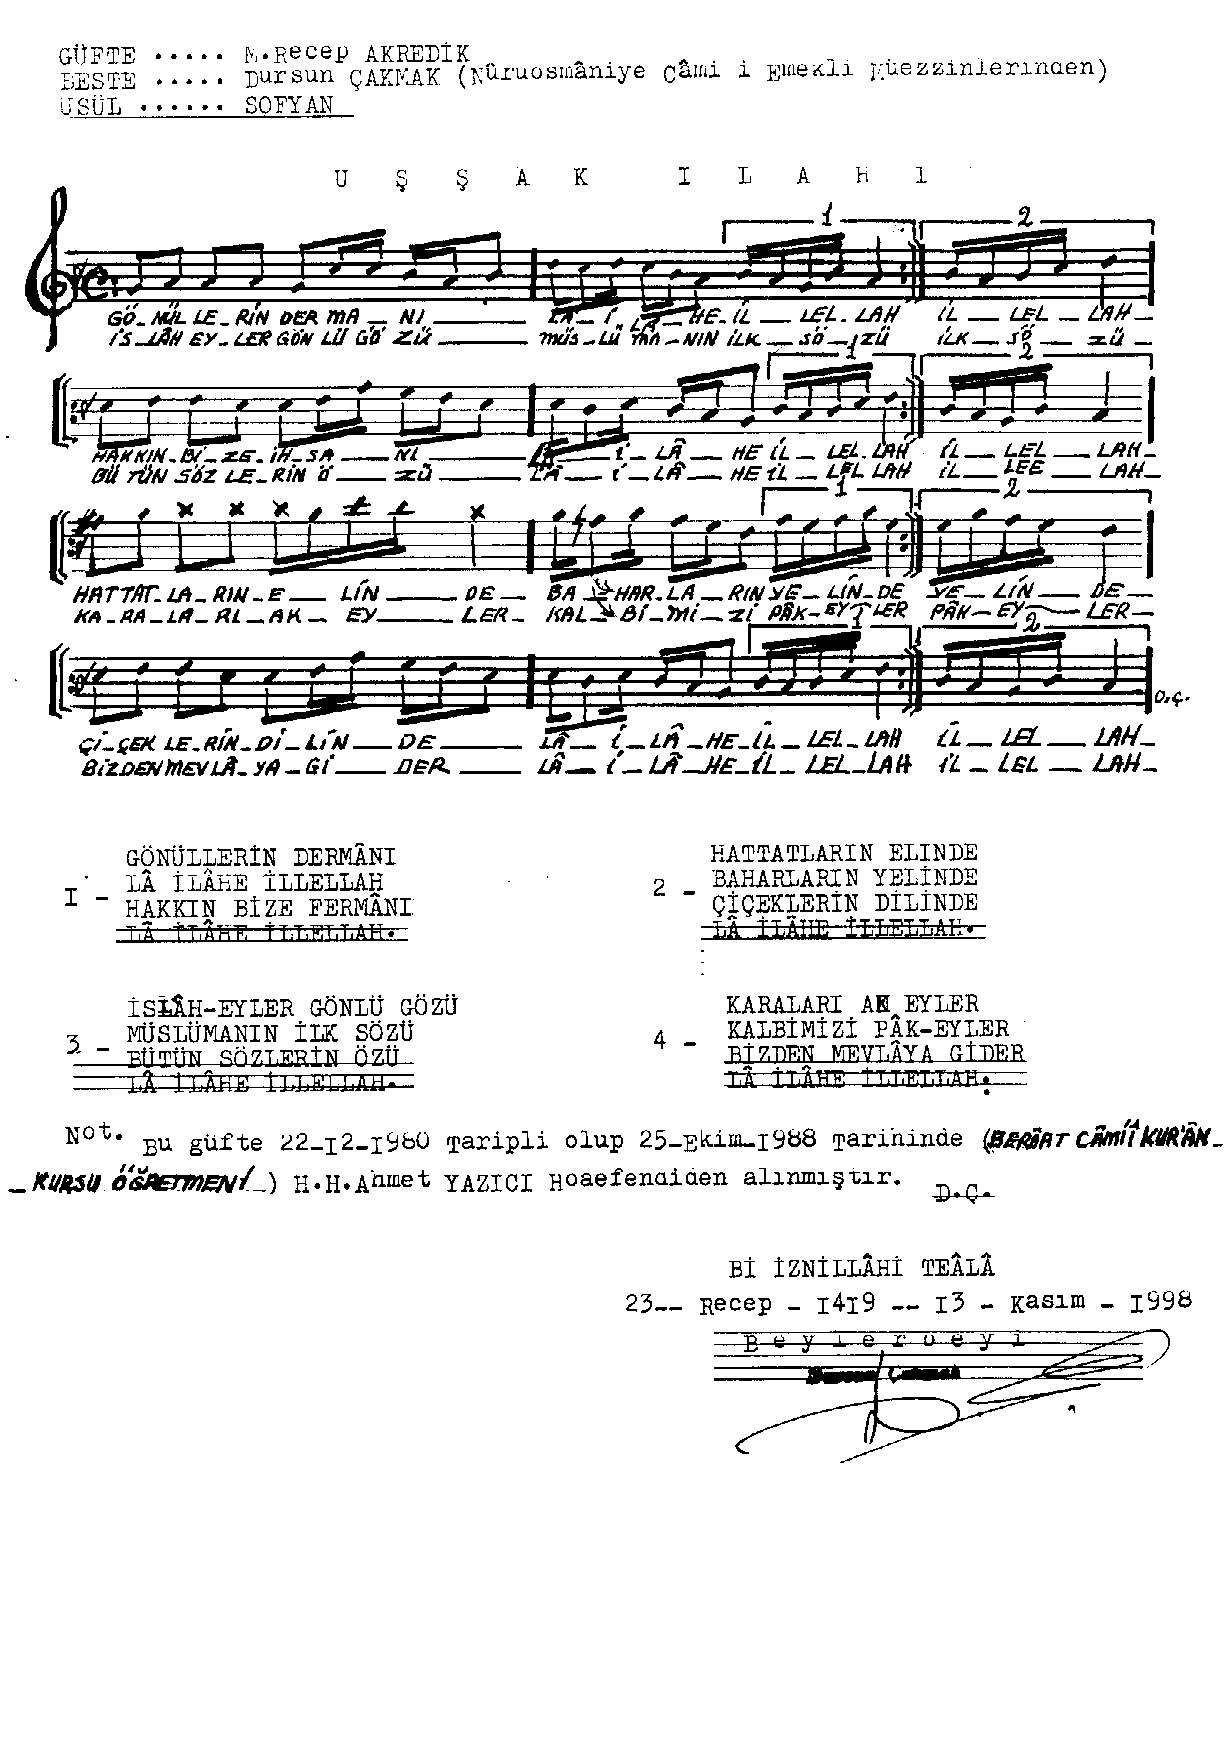 GÜFTE ..... M.Recep AKREDİK
BESTE ..... Dursun ÇAKMAK (Nûruosmâniye Câmi i Emekli Müezzinlerinden)
USÜL ...... SOFYAN
U Ş Ş A K İ L A H I
1 2
GÖ_NÜL LE_RİN DER MA_NI LÂ_İ_LÂ_HE_İL_LEL_LAH İL_LEL_LAH_
İS_LÂH EY_LER GÖN LÜ GÖ ZÜ MÜS_LÜ MA_NIN İLK_SÖ_ZÜ İLK_SÖ_ZÜ_
1 2
HAKKIN_Bİ_ZE_İH_SA_NI LÂ_İ_LÂ_HE İL_LEL_LAH İL_LEL_LAH_
BÜ TÜN SÖZ LE_RİN Ö_ZÜ LÂ_İ_LÂ_HE İL_LEL LAH İL_LEE_LAH_
1 2
HATTAT_LA_RIN_E_LİN_DE_ BA_HAR_LA_RIN YE_LİN_DE YE_LİN_DE_
KA_RA_LA_RI_AK_EY_LER_ KAL_Bİ_Mİ_Zİ PÂK_EY_LER PÂK_EY_LER_
1 2
Çİ_ÇEK LE_RİN_Dİ_LİN_DE LÂ_İ_LÂ_HE_İL_LEL_LAH İL_LEL_LAH_
D.Ç.
BİZDEN MEV LÂ_YA_Gİ_DER LÂ_İ_LÂ_HE_İL_LEL_LAH İL_LEL_LAH_
1 - GÖNÜLLERİN DERMÂNI
LÂ İLÂHE İLLELLAH
HAKKIN BİZE FERMÂNI
LÂ İLÂHE İLLELLAH.
2 - HATTATLARIN ELINDE
BAHARLARIN YELİNDE
ÇİÇEKLERİN DİLİNDE
LÂ İLÂHE İLLELLAH.
3 - İSLÂH-EYLER GÖNLÜ GÖZÜ
MÜSLÜMANIN İLK SÖZÜ
BÜTÜN SÖZLERİN ÖZÜ
LÂ İLÂHE İLLELLAH.
4 - KARALARI AK EYLER
KALBİMİZİ PÂK-EYLER
BİZDEN MEVLÂYA GİDER
LÂ İLÂHE İLLELLAH.
Not. Bu güfte 22-12-1980 Taripli olup 25-Ekim-1988 Tarihinde (BERÂAT CÂMİİ KUR'ÂN_
_KURSU ÖĞRETMENİ_) H.H.Ahmet YAZICI Hocaefendiden alınmıştır.
D.Ç.
Bİ İZNİLLÂHİ TEÂLÂ
23-- Recep - 1419 -- 13 - Kasım - 1998
Beylerbeyi
Dursun Çakmak